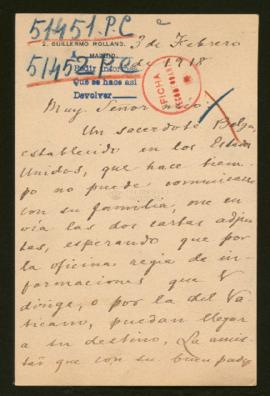 51451.P.C
2. GUILLERMO ROLLAND.
MADRID
51452 P.C
3 de Febrero
de 1918
Pedir informes
Que se hace así
Devolver
OFICINA
Muy Señor mío:
Un sacerdote Belga,
establecido en los Estados
Unidos, que hace tiem-
po no puede comunicar
con su familia, me en-
vía las dos cartas adjun-
tas, esperando que por
la oficina regia de in-
formaciones que V
dirige, o por la del Va-
ticano, puedan llegar
a su destino. La amis-
tad que con su buen padre